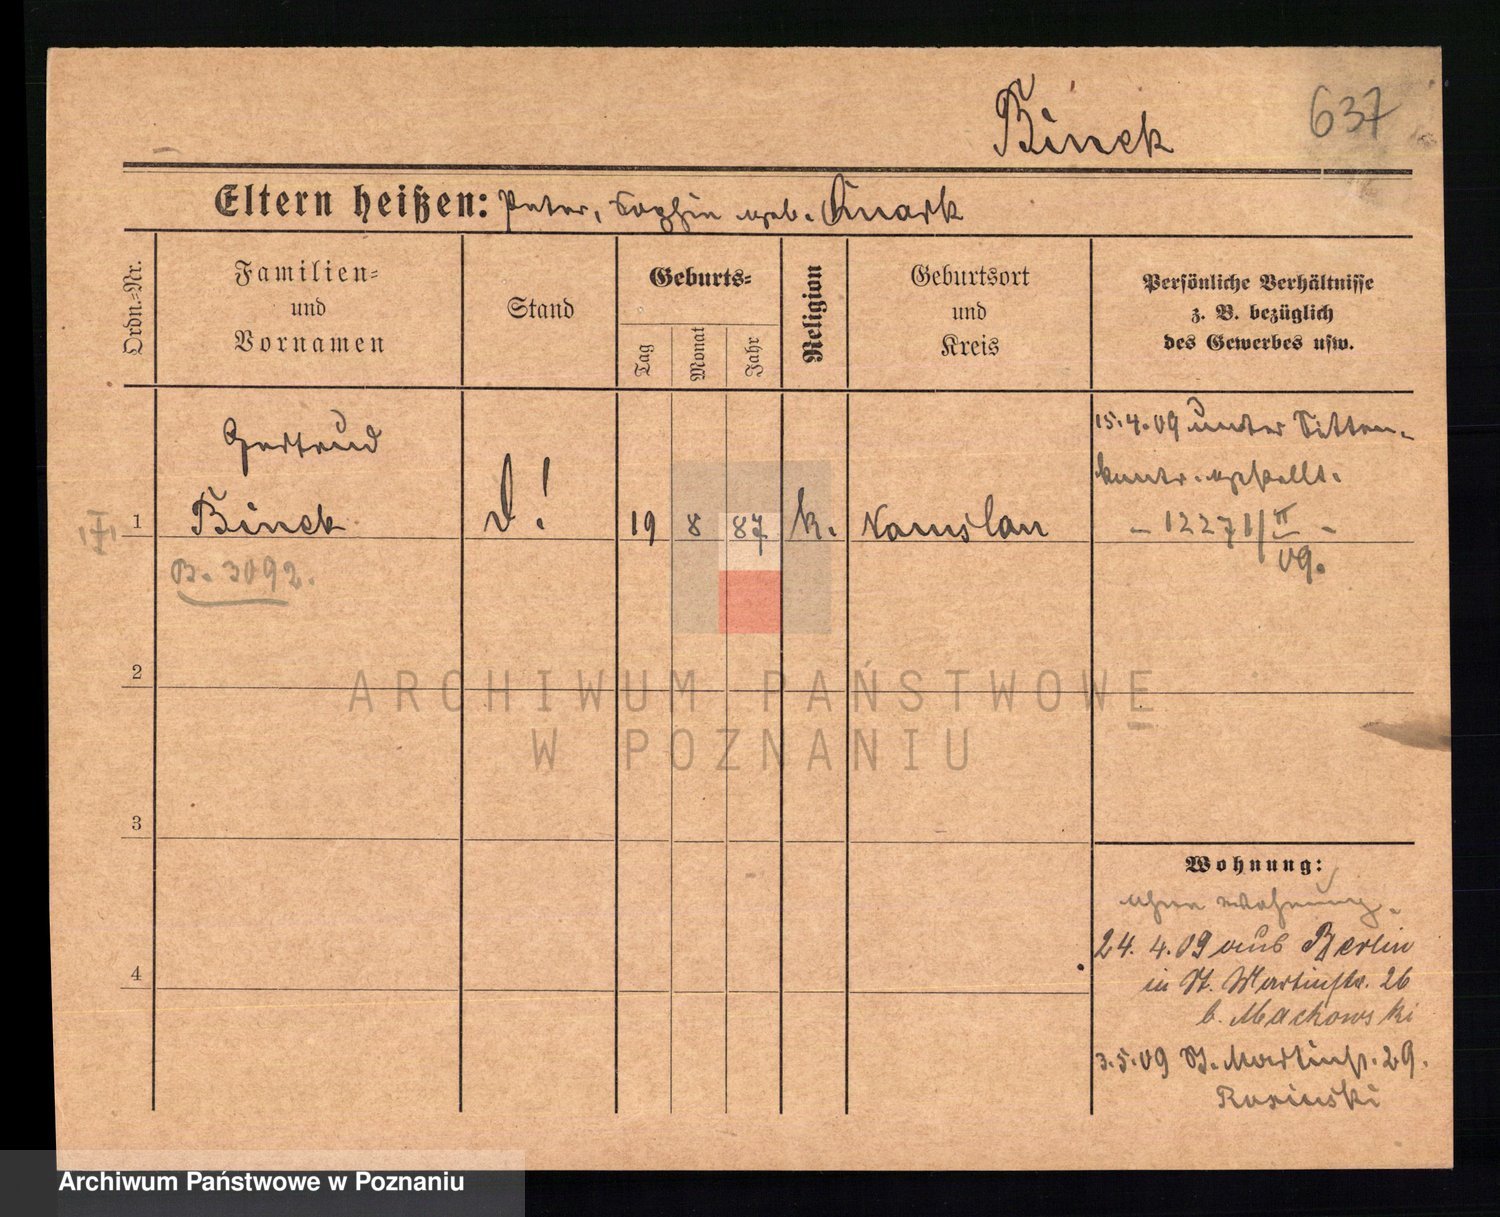 Binek
637
Eltern heißen: Peter, Sophie geb. Knark
Ordn.=Nr.
Familien=
und
Vornamen
Stand
Geburts=
Tag
Monat
Jahr
Religion
Geburtsort
und
Kreis
Persönliche Verhältnisse
z. B. bezüglich
des Gewerbes usw.
Gertrud
1 Binek
19 8 87 k. Namslau
B. 3092.
15.4.09 unter Sitten-
kontr. gestellt.
- 12271/II -
09.
2
3
4
Wohnung:
ohne Wohnung.
24. 4. 09 aus Berlin
in St. Martinstr. 26
b. Mackowski
3.5.09 St. Martinstr. 29.
Rosinski
ARCHIWUM PAŃSTWOWE
W POZNANIU
Archiwum Państwowe w Poznaniu